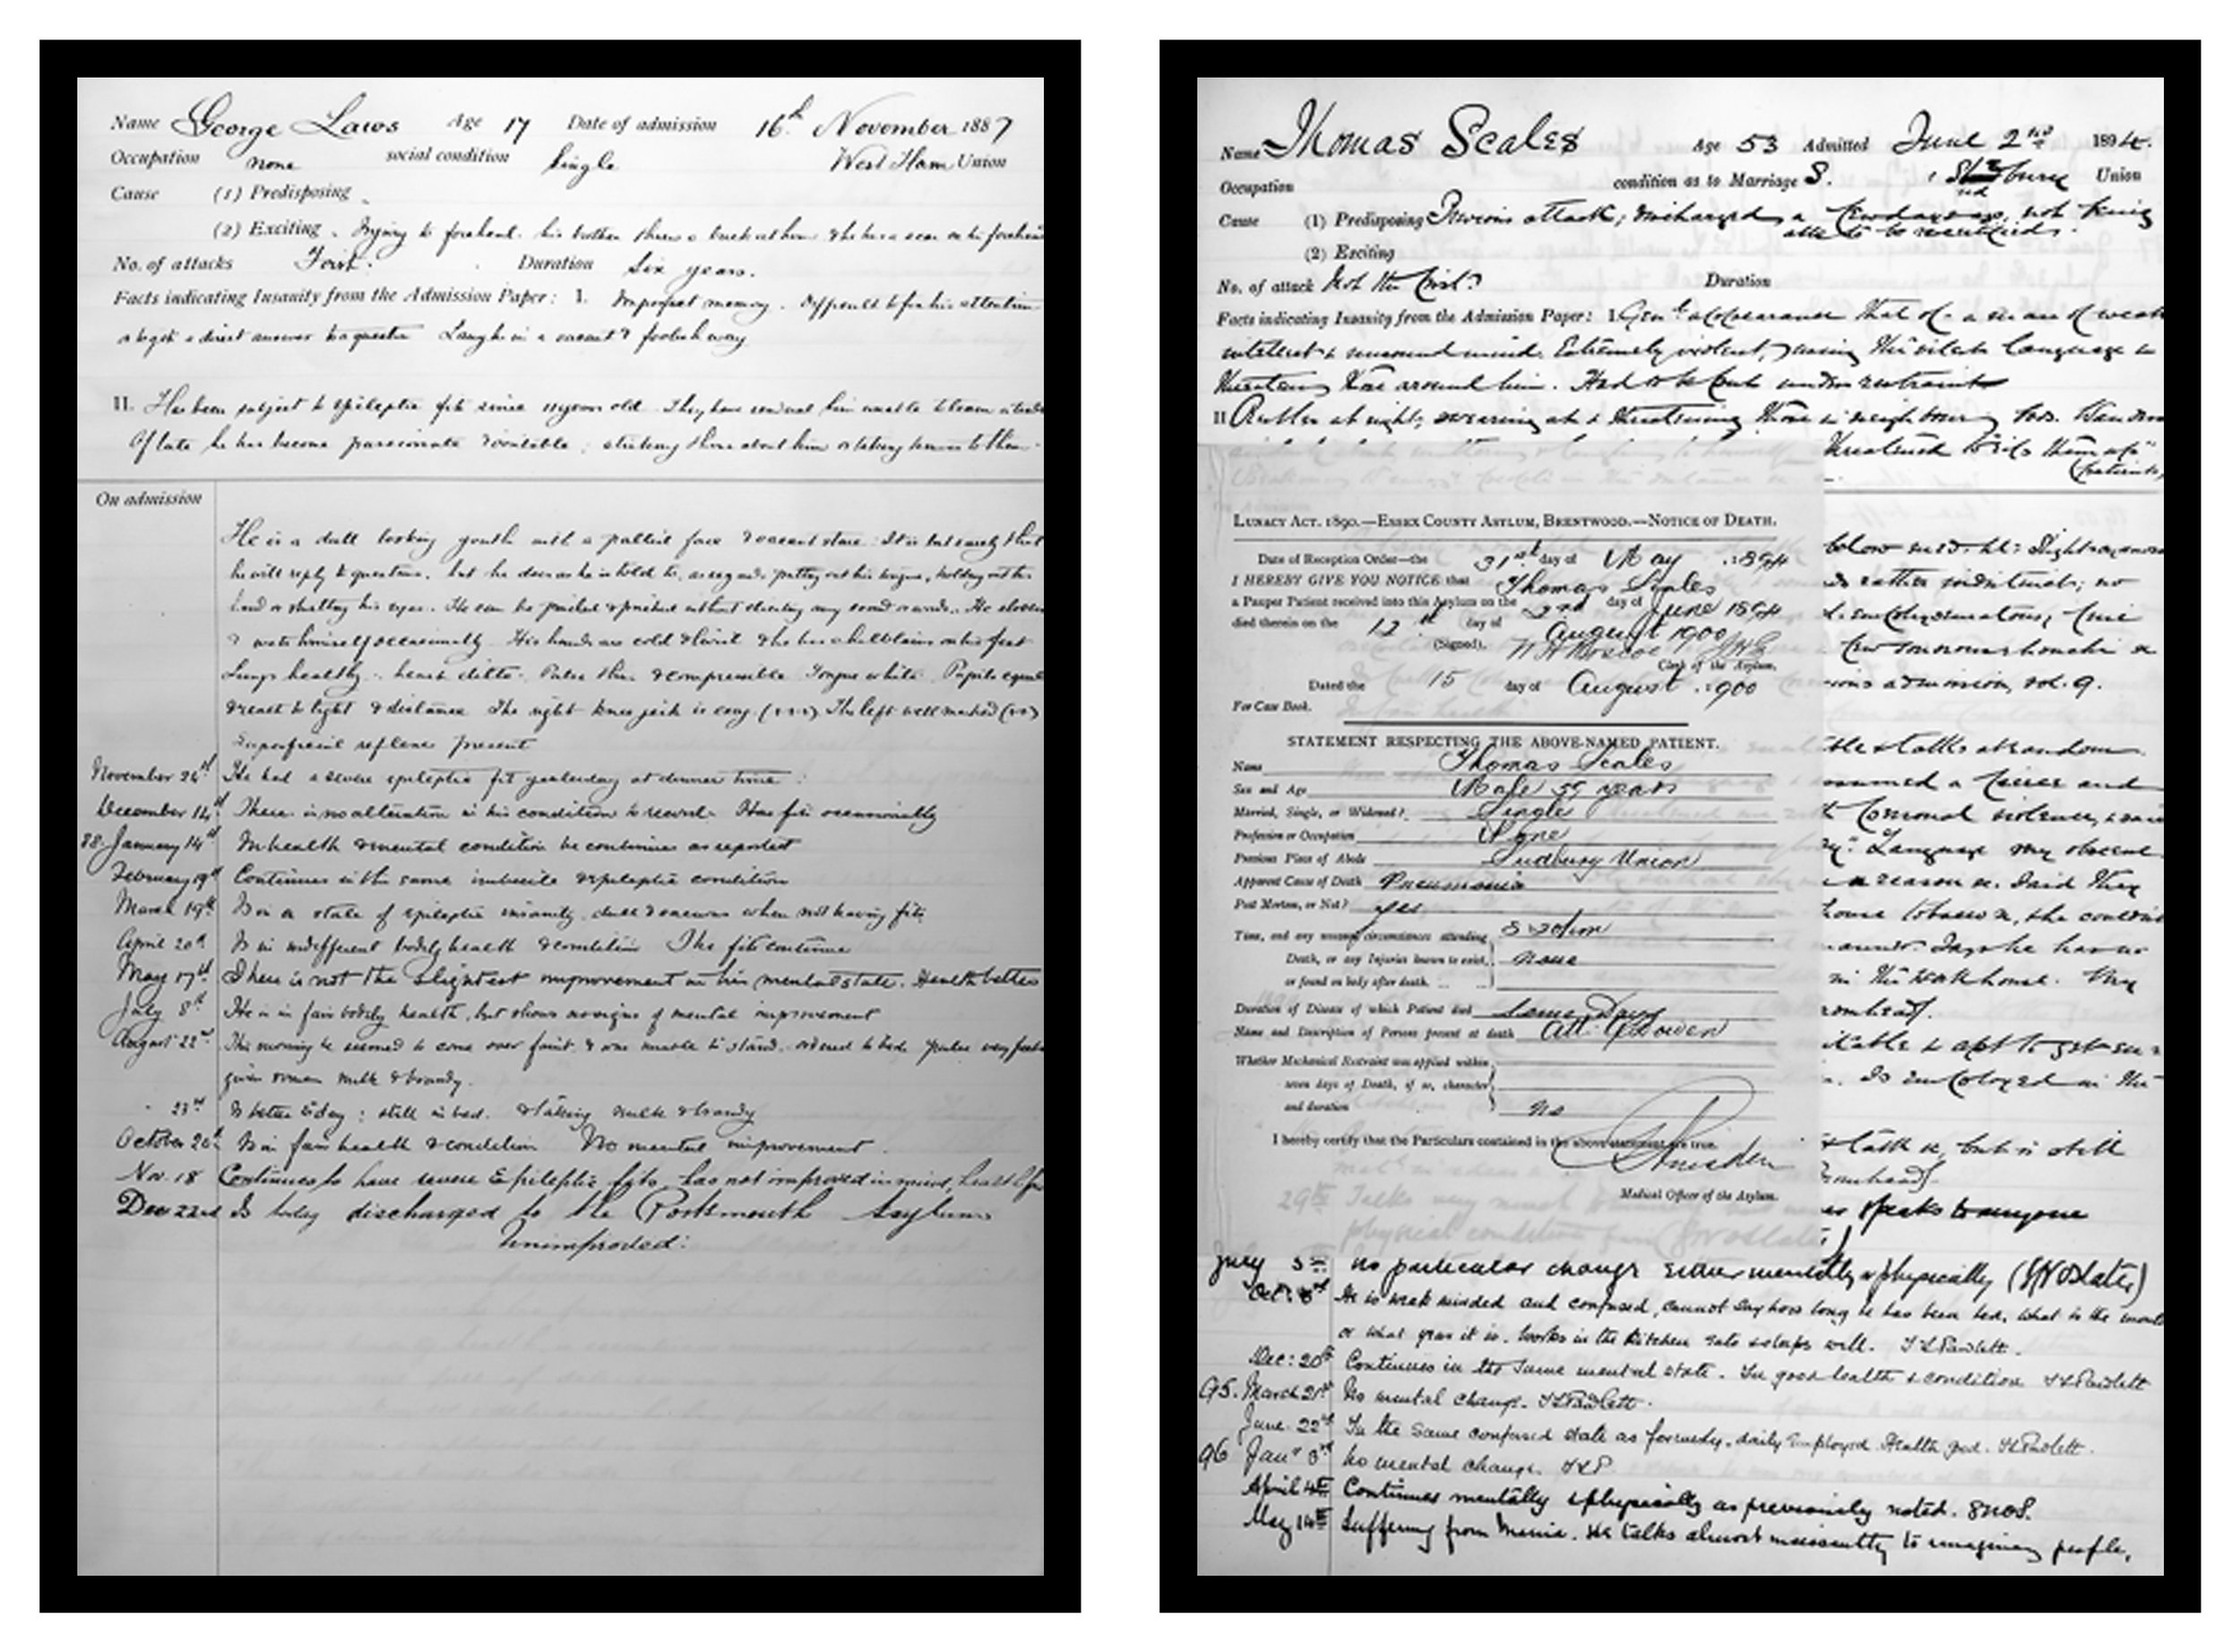 Name George Laws Age 17 Date of admission 16th November 1887
Occupation none social condition Single West Ham Union
Cause (1) Predisposing
(2) Exciting Injury to forehead his brother threw a brick at him & he has a scar on his forehead
No. of attacks First. Duration Six years.
Facts indicating Insanity from the Admission Paper: I. Imperfect memory. Difficult to fix his attention
or to get a direct answer to a question Laughs in a vacant & foolish way
II. Has been subject to epileptic fits since 11 years old They have rendered him unable to learn a trade
Of late he has become passionate & irritable; striking those about him
On admission
He is a dull looking youth with a pallid face & vacant stare. It is but rarely that
he will reply to questions, but he does as he is told to, as regards putting out his tongue, holding out his
hand or shutting his eyes. He can be pinched & pricked without eliciting any sound or words. He
& wets himself occasionally. His hands are cold & livid & he has chilblains on his feet
Lungs healthy - heart ditto. Pulse thin & compressible Tongue white Pupils equal
& react to light & distance The right knee jerk is The left well marked
Superficial reflexes present
November 24th He had a severe epileptic fit yesterday at dinner time.
December 14th There is no alteration in his condition to record. Has fits occasionally
88. January 14th In health & mental condition he continues as reported
February 19th Continues in the same imbecile & epileptic condition
March 19th Is in a state of epileptic insanity, dull & when not having fits
April 20th Is in indifferent bodily health & condition The fits continue
May 17th There is not the slightest improvement in his mental state. Health better
July 8th He is in fair bodily health, but shows no signs of mental improvement
August 22nd This morning he seemed to come over faint & was unable to stand. ordered to bed. pulse very feeble
given milk & brandy.
23rd Is better to day: still in bed. & taking milk & brandy
October 20th Is in fair health & condition No mental improvement.
Nov. 18 Continues to have severe Epileptic fits, has not improved in mind, health fair
Dec 22nd Is today discharged to the Portsmouth Asylum
Unimproved.
Name Thomas Scales Age 53 Admitted June 2nd 1894.
Occupation condition as to Marriage S. Sudbury Union
Cause (1) Predisposing Previous attack; discharged a few days ago, not being
able to be recertified.
(2) Exciting
No. of attack Not the first? Duration
Facts indicating Insanity from the Admission Paper: I. Genl. appearance that of a man of weak
intellect & unsound mind. Extremely violent, using the vilest language &
threatening those around him. Had to be put under restraint
II at night, swearing at & threatening those in neighbouring beds.
threatened to rip them up"
(patients)
LUNACY ACT. 1890.—ESSEX COUNTY ASYLUM, BRENTWOOD.—NOTICE OF DEATH.
Date of Reception Order—the 31st day of May 1894
I HEREBY GIVE YOU NOTICE that Thomas Scales
a Pauper Patient received into this Asylum on the 2nd day of June 1894
died therein on the 12th day of August 1900
(Signed), W H Roscoe
Clerk of the Asylum.
Dated the 15 day of August 1900
For Case Book.
STATEMENT RESPECTING THE ABOVE-NAMED PATIENT.
Name Thomas Scales
Sex and Age Male 59 years
Married, Single, or Widowed? Single
Profession or Occupation None
Previous Place of Abode Sudbury Union
Apparent Cause of Death Pneumonia
Post Mortem, or Not? Yes
Time, and any unusual circumstances attending
Death, or any Injuries known to exist, None
or found on body after death.
Duration of Disease of which Patient died Some Days
Name and Description of Persons present at death Att.
Whether Mechanical Restraint was applied within
seven days of Death, if so, character
and duration No
I hereby certify that the Particulars contained in the above statement are true.
Medical Officer of the Asylum.
is rather indistinct; no
previous admission, vol. 9.
talks at random
assumed a fierce and
Language very obscene
reason &c. Said they
house tobacco &, & he couldn't
manner. Says he has no
in the workhouse. Very
irritable & apt to get
Is employed in the
talk &, but is still
speaks to anyone
29th Talks very much
physical condition fair
July 5th no particular change either mentally or physically (Slater)
Oct: 8th He is weak minded and confused, cannot say how long he has been here, what is the month
or what year it is. Works in the kitchen eats & sleeps well.
Dec: 20th Continues in the same mental state. In good health & condition
95. March 21st No mental change.
June 22nd In the same confused state as formerly, daily employed Health good.
96 Jany 3rd No mental change.
April 4th Continues mentally & physically as previously noted.
May 14th Suffering from Mania. He talks almost incessantly to imaginary people,